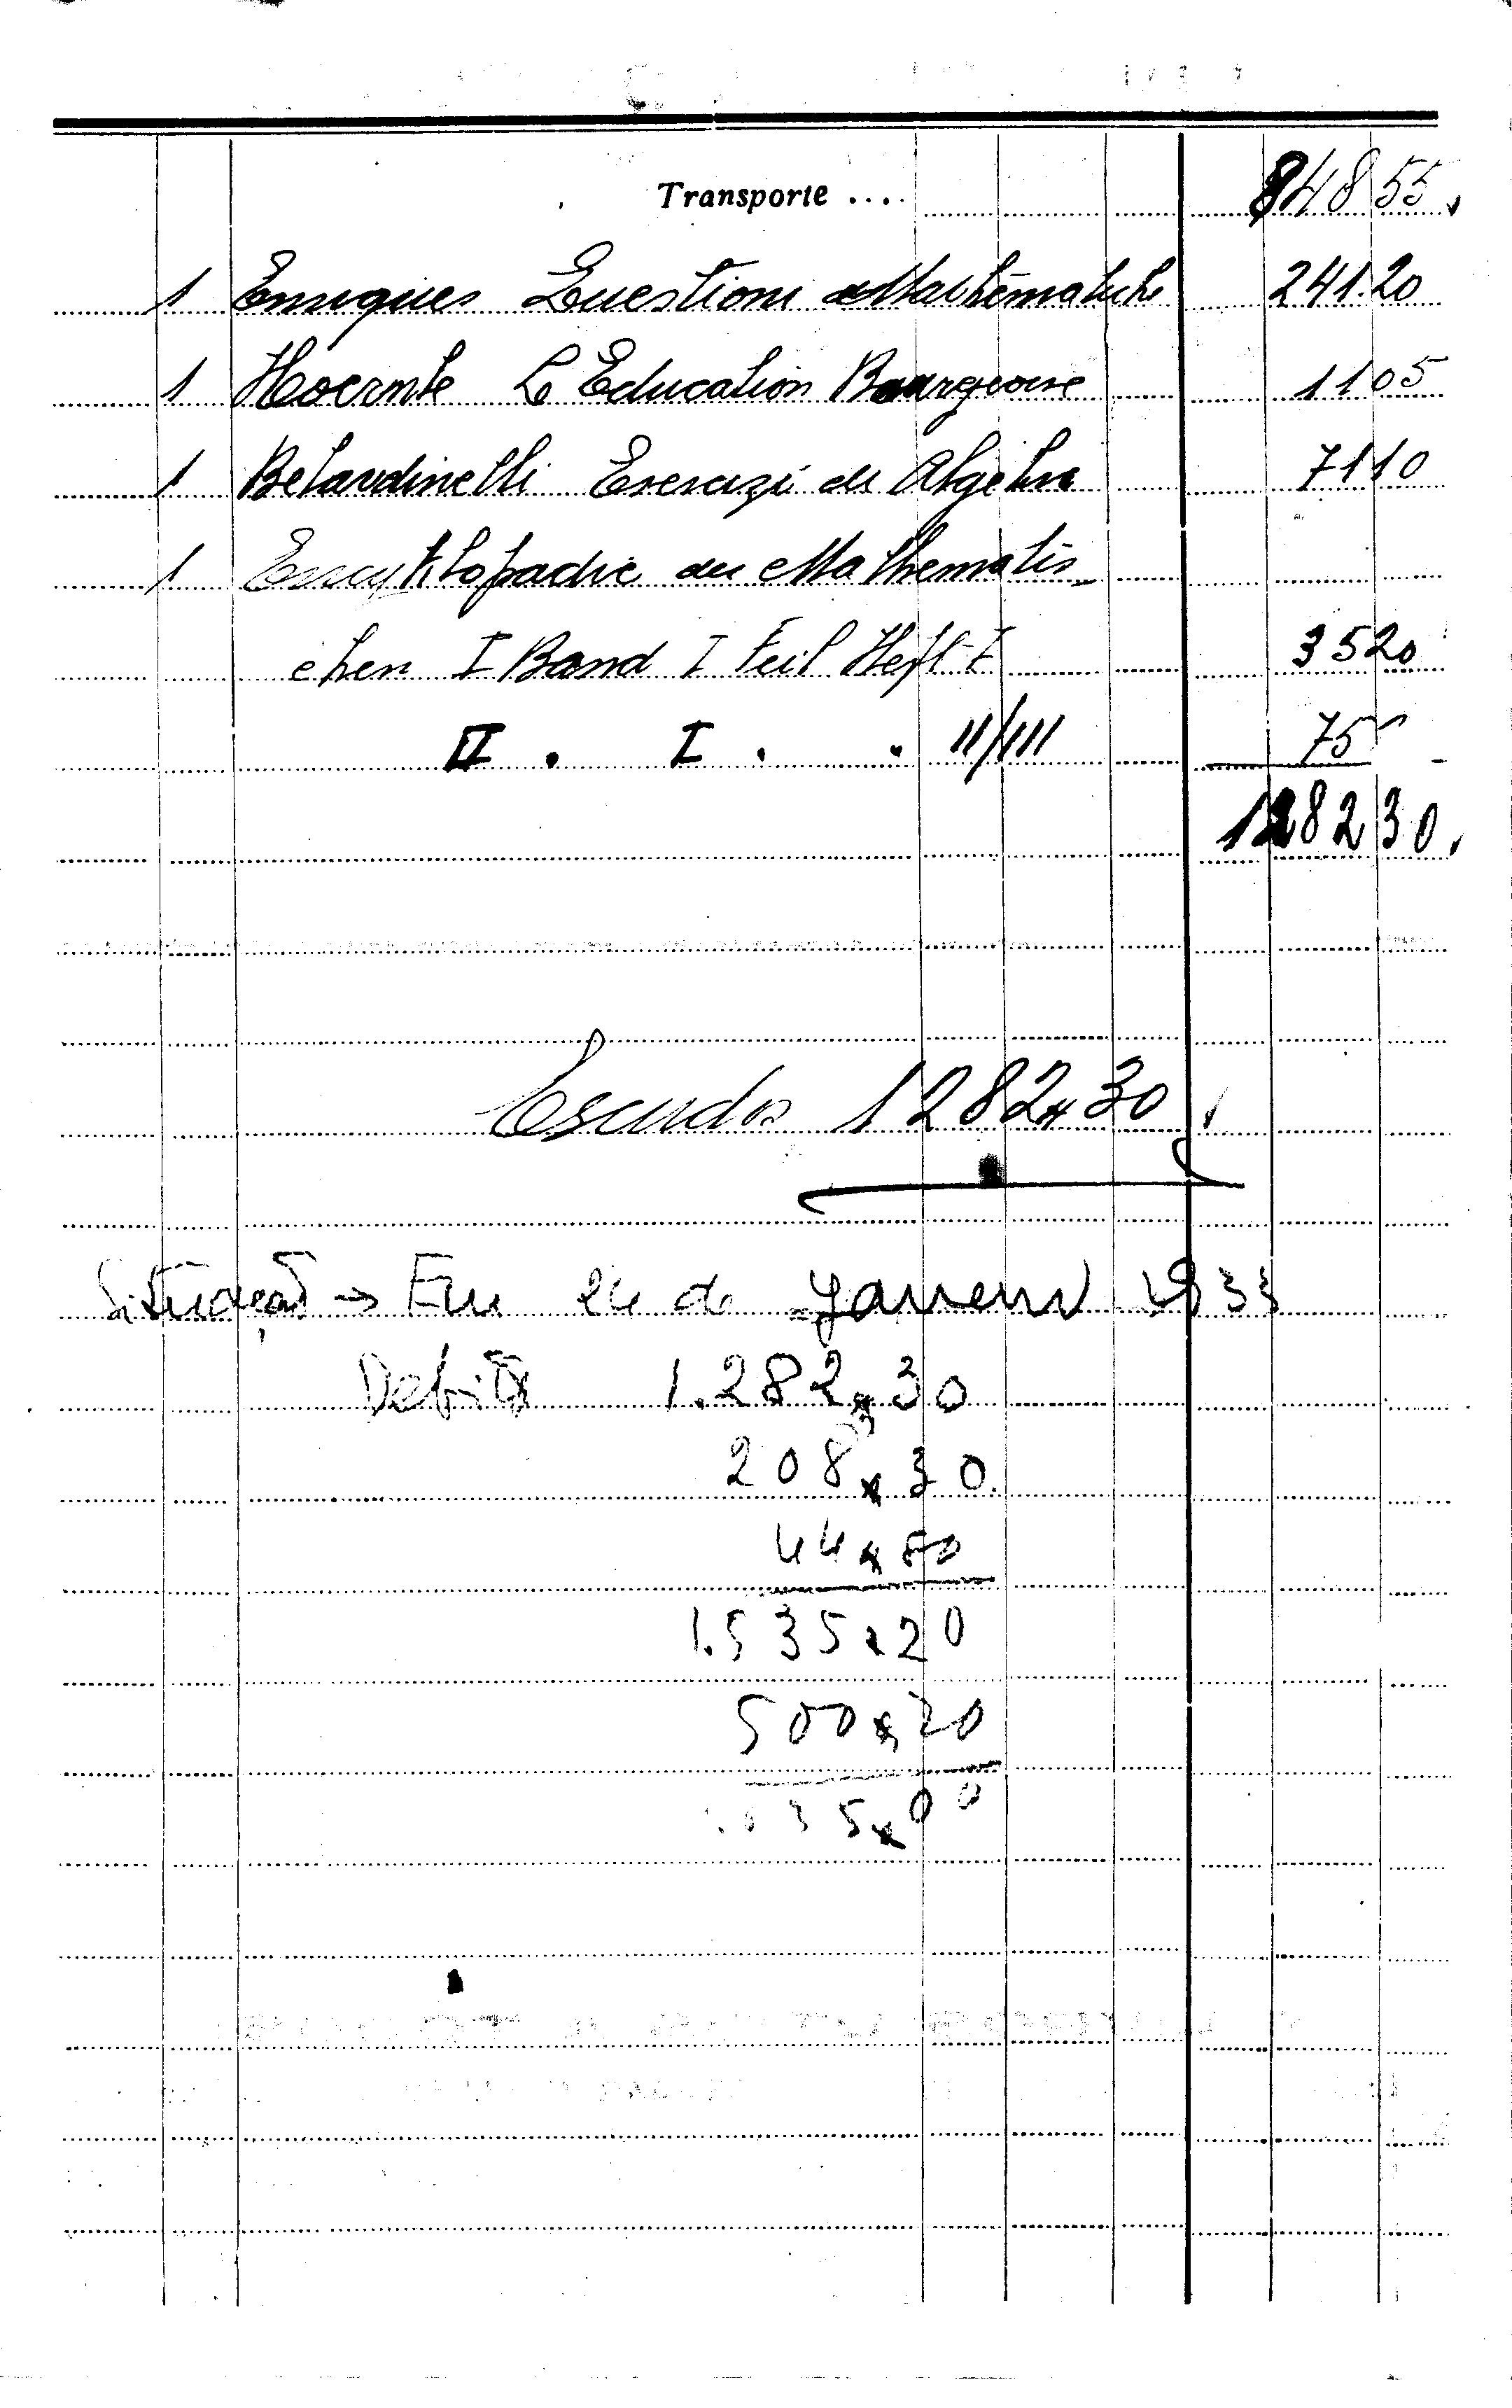 Transporte .... 848 55
1 Enriques Questioni Mathematiche 241 20
1 Hoernle L'Education Bourgeoise 11 05
1 Belardinelli Esercizi di Algebra 71 10
1 Encyklopadie der Mathematis-
chen I Band I Teil Heft I 35 20
II . I . . II/III 75
1282 30
Escudos 1282$30
Situação → Em 24 de Janeiro 1933
Debito 1.282$30
208$30
44$60
1.535$20
500$20
1.035$00